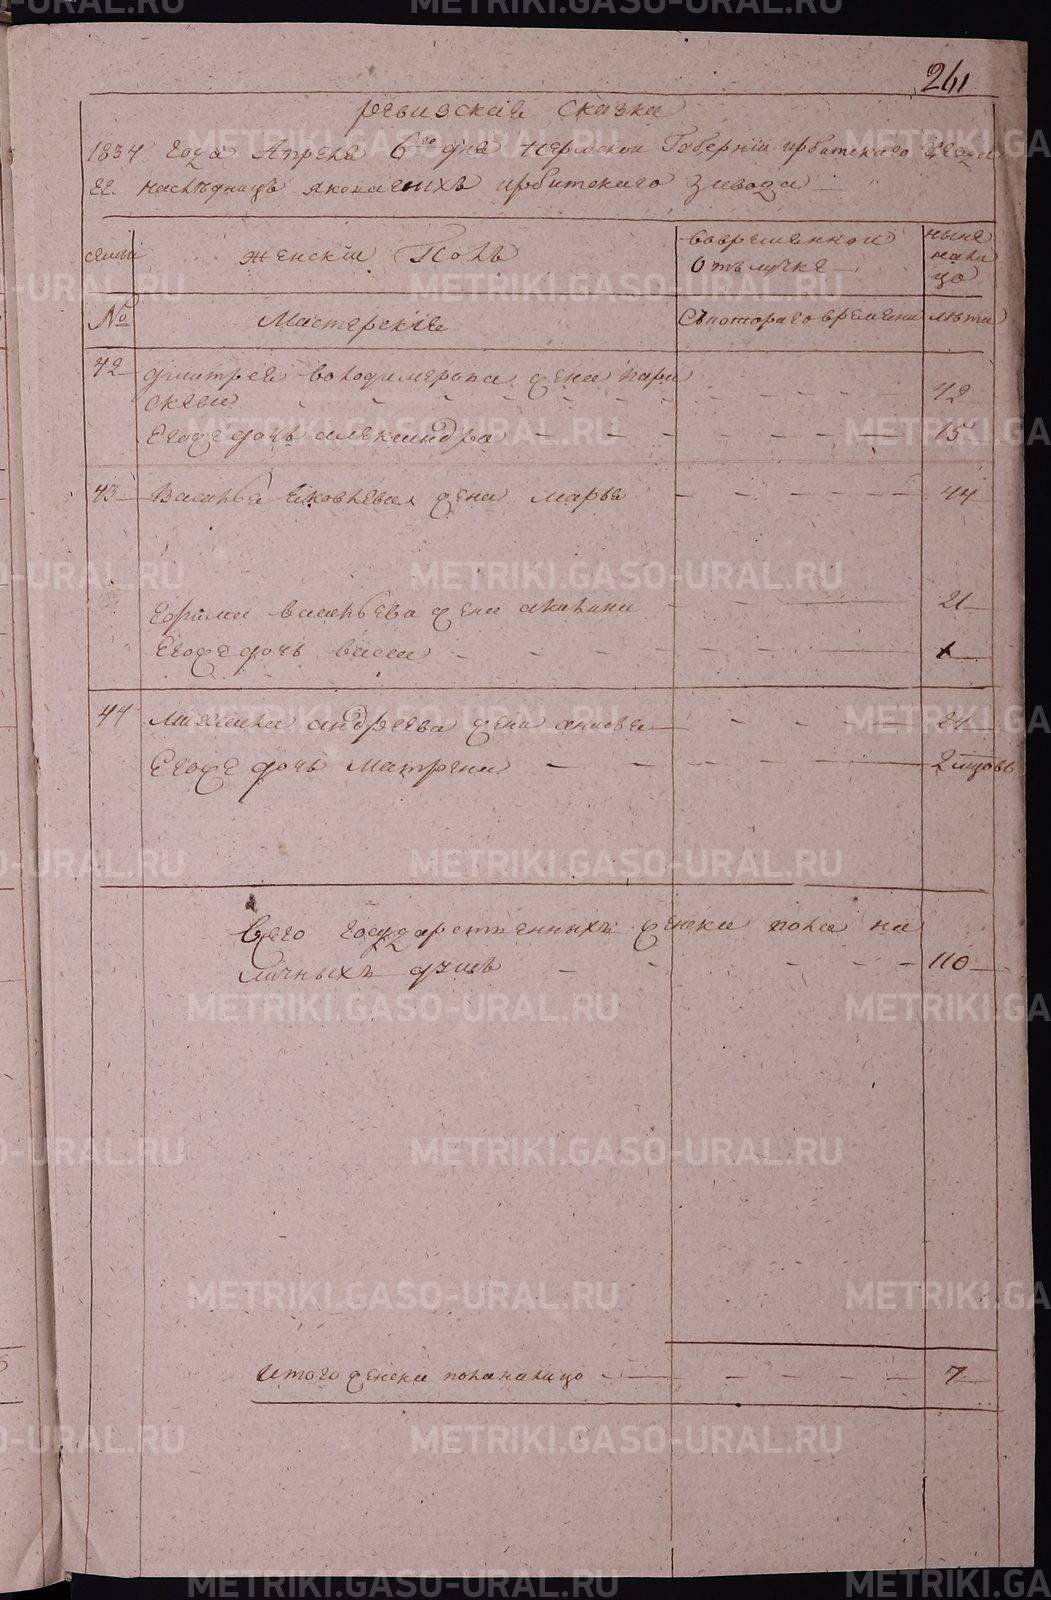 261
Ревизская сказка
1834 года Апреля 6го дня Пермской Губернии ирбитскаго уезда
гг. наслѣдницъ яковлевыхъ ирбитскаго завода
семьи
женскій Полъ
вовременной
отълучке
ныне
нали
цо
№
Мастерскіе
Съкотораго времени
лѣта
42
дмитрея володимерова жена пара
скева
42
Егоже дочь александра
15
43
Василья яковлева жена марья
44
Ефима васильева жена акилина
21
Егоже дочь васса
1
44
михаила андреева жена анисья
24
Егоже дочь матрена
2 мцовъ
Всего государственныхъ женска пола на
личныхъ душъ
110
Итого женска пола налицо
7
METRIKI.GASO-URAL.RU